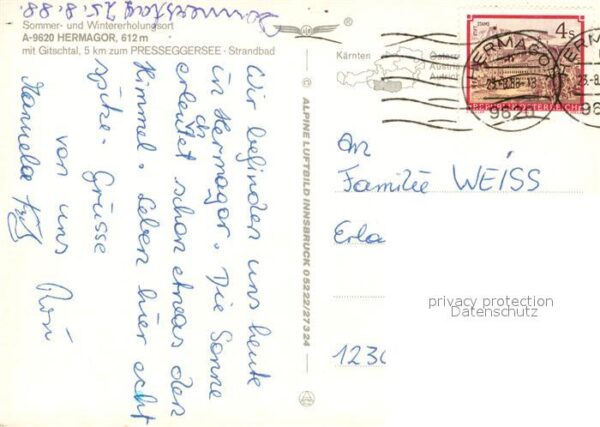 Donnerstag, 25.8.88.
Sommer- und Wintererholungsort
A-9620 HERMAGOR, 612 m
mit Gitschtal, 5 km zum PRESSEGGERSEE · Strandbad
Wir befinden uns heute
in Hermagor. Die Sonne
erleuchtet schon etwas den
Himmel. Leben hier echt
spitze. Grüsse
von uns
Manuela
© ALPINE LUFTBILD INNSBRUCK 05222/27324
Kärnten
HERMAGOR
9620
HERMAGOR
4 S
STIFT STAMS
REPUBLIK ÖSTERREICH
An
Familie WEISS
Erla
privacy protection
Datenschutz
1230